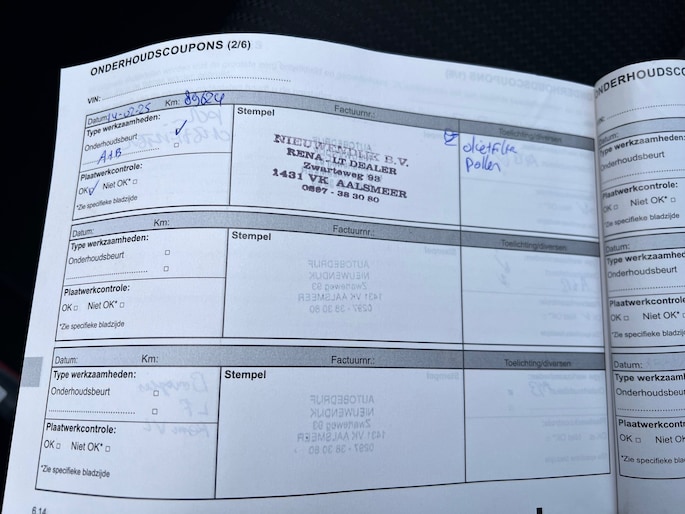 ONDERHOUDSCOUPONS (2/6)
VIN:
Datum: 14-02-25 Km: 89624
Type werkzaamheden:
Onderhoudsbeurt
A+B
Plaatwerkcontrole:
OK Niet OK*
*Zie specifieke bladzijde
Stempel Factuurnr.:
NIEUWENDIJK B.V.
RENAULT DEALER
Zwarteweg 93
1431 VK AALSMEER
0297 - 38 30 80
Toelichting/diversen
oliefilter
Pollen
Datum: Km:
Type werkzaamheden:
Onderhoudsbeurt
Plaatwerkcontrole:
OK Niet OK*
*Zie specifieke bladzijde
Stempel Factuurnr.:
Toelichting/diversen
Datum: Km:
Type werkzaamheden:
Onderhoudsbeurt
Plaatwerkcontrole:
OK Niet OK*
*Zie specifieke bladzijde
Stempel Factuurnr.:
Toelichting/diversen
6.14
ONDERHOUDSCO
VIN:
Datum:
Type werkzaamhed
Onderhoudsbeurt
Plaatwerkcontrole:
OK Niet OK*
*Zie specifieke bladzijde
Datum:
Type werkzaamhede
Onderhoudsbeurt
Plaatwerkcontrole
OK Niet OK*
*Zie specifieke bladzijde
Datum:
Type werkzaamh
Onderhoudsbeurt
Plaatwerkcontrole
OK Niet OK*
*Zie specifieke bladz